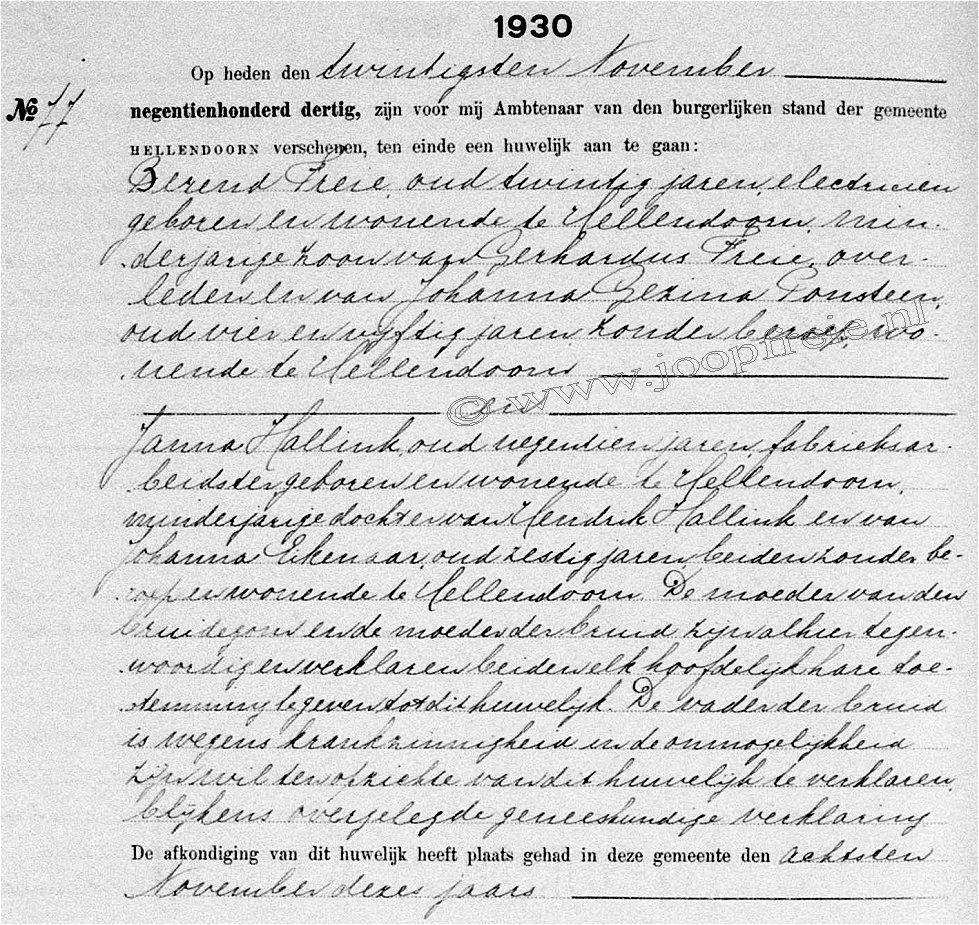 1930
Op heden den twintigsten November
No 77
negentienhonderd dertig, zijn voor mij Ambtenaar van den burgerlijken stand der gemeente
HELLENDOORN verschenen, ten einde een huwelijk aan te gaan:
Berend Freie, oud twintig jaren, electricien
geboren en wonende te Hellendoorn, min-
derjarige zoon van Gerhardus Freie, over-
leden en van Johanna Gezina Ponsteen,
oud vier en vijftig jaren, zonder beroep, wo-
nende te Hellendoorn
en
© www.joopfreje.nl
Janna Hallink, oud negentien jaren, fabrieksar-
beidster, geboren en wonende te Hellendoorn,
minderjarige dochter van Hendrik Hallink en van
Johanna Eikenaar, oud zestig jaren, beiden zonder be-
roep en wonende te Hellendoorn. De moeder van den
bruidegom en de moeder der bruid zijn alhier tegen-
woordig en verklaren beiden elk hoofdelijk hare toe-
stemming te geven tot dit huwelijk. De vader der bruid
is wegens krankzinnigheid in de onmogelijkheid
zijn wil ten opzichte van dit huwelijk te verklaren,
blijkens overgelegde geneeskundige verklaring
De afkondiging van dit huwelijk heeft plaats gehad in deze gemeente den achtsten
November dezes jaars